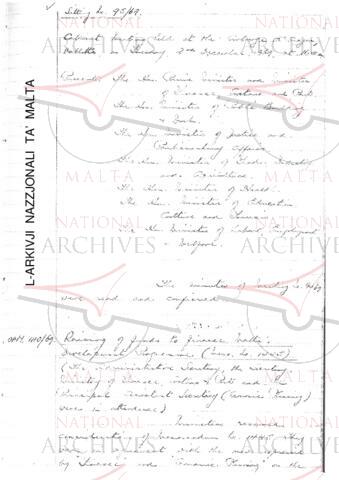 Sitting No. 95/69.
Cabinet meeting held at the Auberge
Valletta on Tuesday, 2nd December, 1969, at
Present: The Hon. Prime Minister and Minister
of Finance, Customs and Port.
The Hon. Minister of Public Building
& Works.
The Hon. Minister of Justice and
Parliamentary Affairs.
The Hon. Minister of Trade, Industry
and Agriculture.
The Hon. Minister of Health.
The Hon. Minister of Education,
Culture and Tourism.
The Hon. Minister of Labour, Employment
& Welfare.
The minutes of meeting No. 94/69
were read and confirmed.
OPM. 1110/69
Raising of funds to finance Malta's
Development Programme (Memo. No. 1445)
(The Administrative Secretary, the Secretary,
Ministry of Finance, Customs & Port and the
Principal Assistant Secretary (Economic Planning)
were in attendance)
Ministers resumed
consideration of Memorandum No. 1445. They
were with the
by "Finance" and "Economic Planning" on the
L-ARKIVJI NAZZJONALI TA' MALTA
NATIONAL
MALTA
ARCHIVES